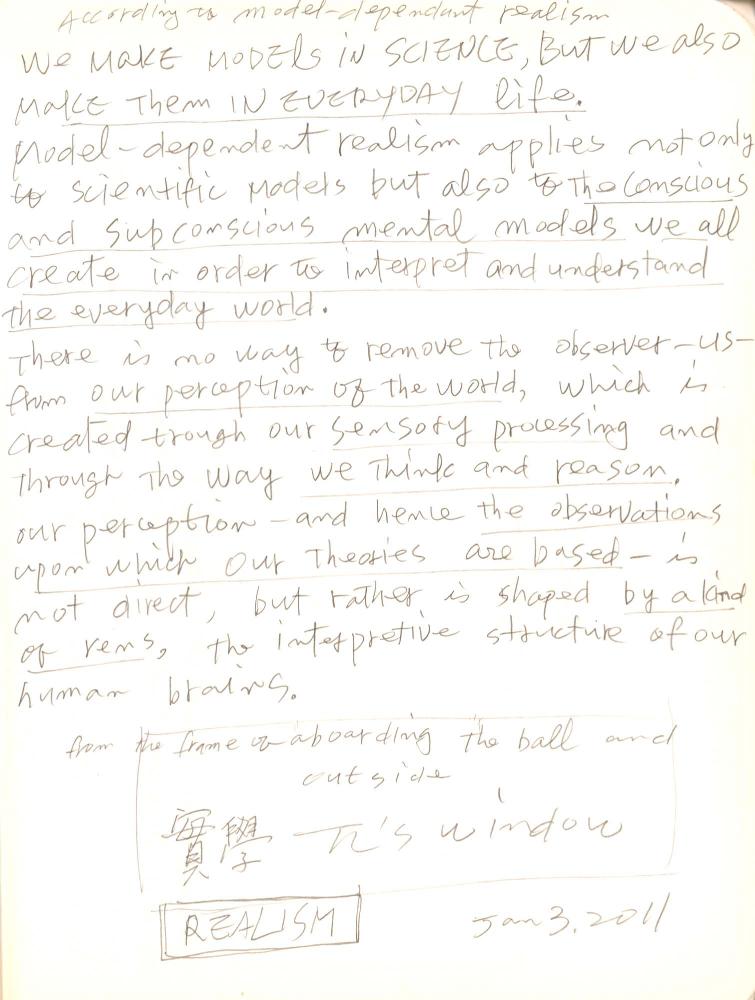 According to model-dependant realism
We MAKE MODELS iN SCIENCE, But we also
MAKE Them IN EVERYDAY life.
Model-dependent realism applies not only
to scientific models but also to the conscious
and subconscious mental models we all
create in order to interpret and understand
the everyday world.
There is no way to remove the observer-us-
from our perception of the world, which is
created trough our sensory processing and
through the way we think and reason.
our perception - and hence the observations
upon which our Theories are based - is
not direct, but rather is shaped by a kind
of rens, the interpretive structure of our
human brains.
from the frame of aboarding the ball and
outside
實學 π's window
REALISM Jan 3, 2011